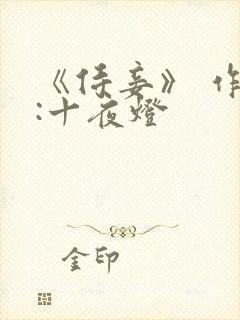 《侍妾》 作
:十夜燈
金印